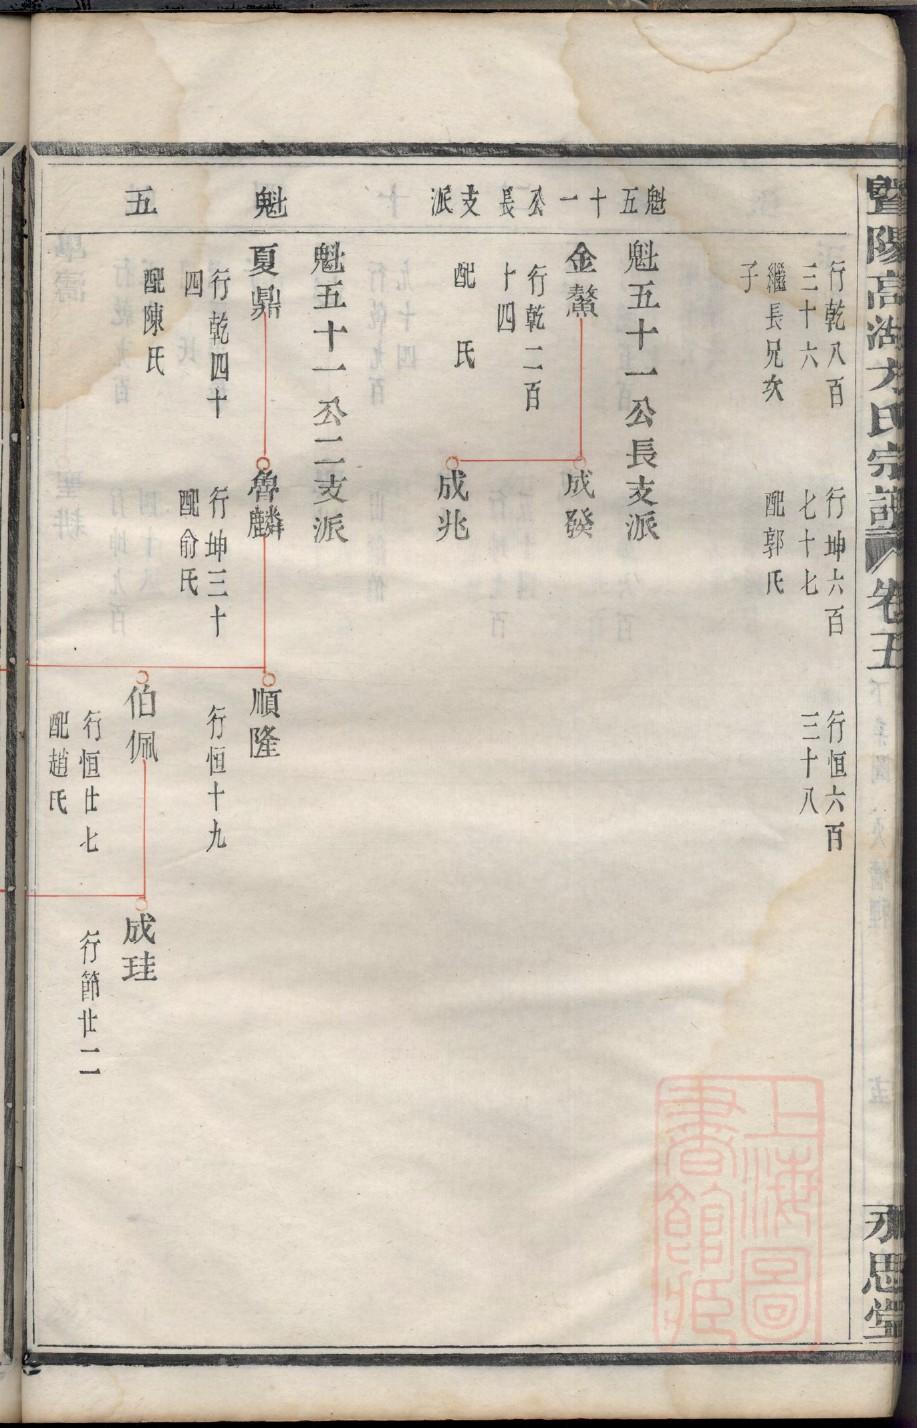 暨陽高湖方氏宗譜
卷五
永思堂
魁五十一公長支派
魁
五
行乾八百
三十六
繼長兄次
子
行坤六百
七十七
配郭氏
行恒六百
三十八
魁五十一公長支派
金鰲
行乾二百
十四
配 氏
成發
成兆
魁五十一公二支派
夏鼎
行乾四十
四
配陳氏
魯麟
行坤三十
配俞氏
順隆
行恒十九
伯佩
行恒廿七
配趙氏
成珪
行節廿二
上海圖
書館藏